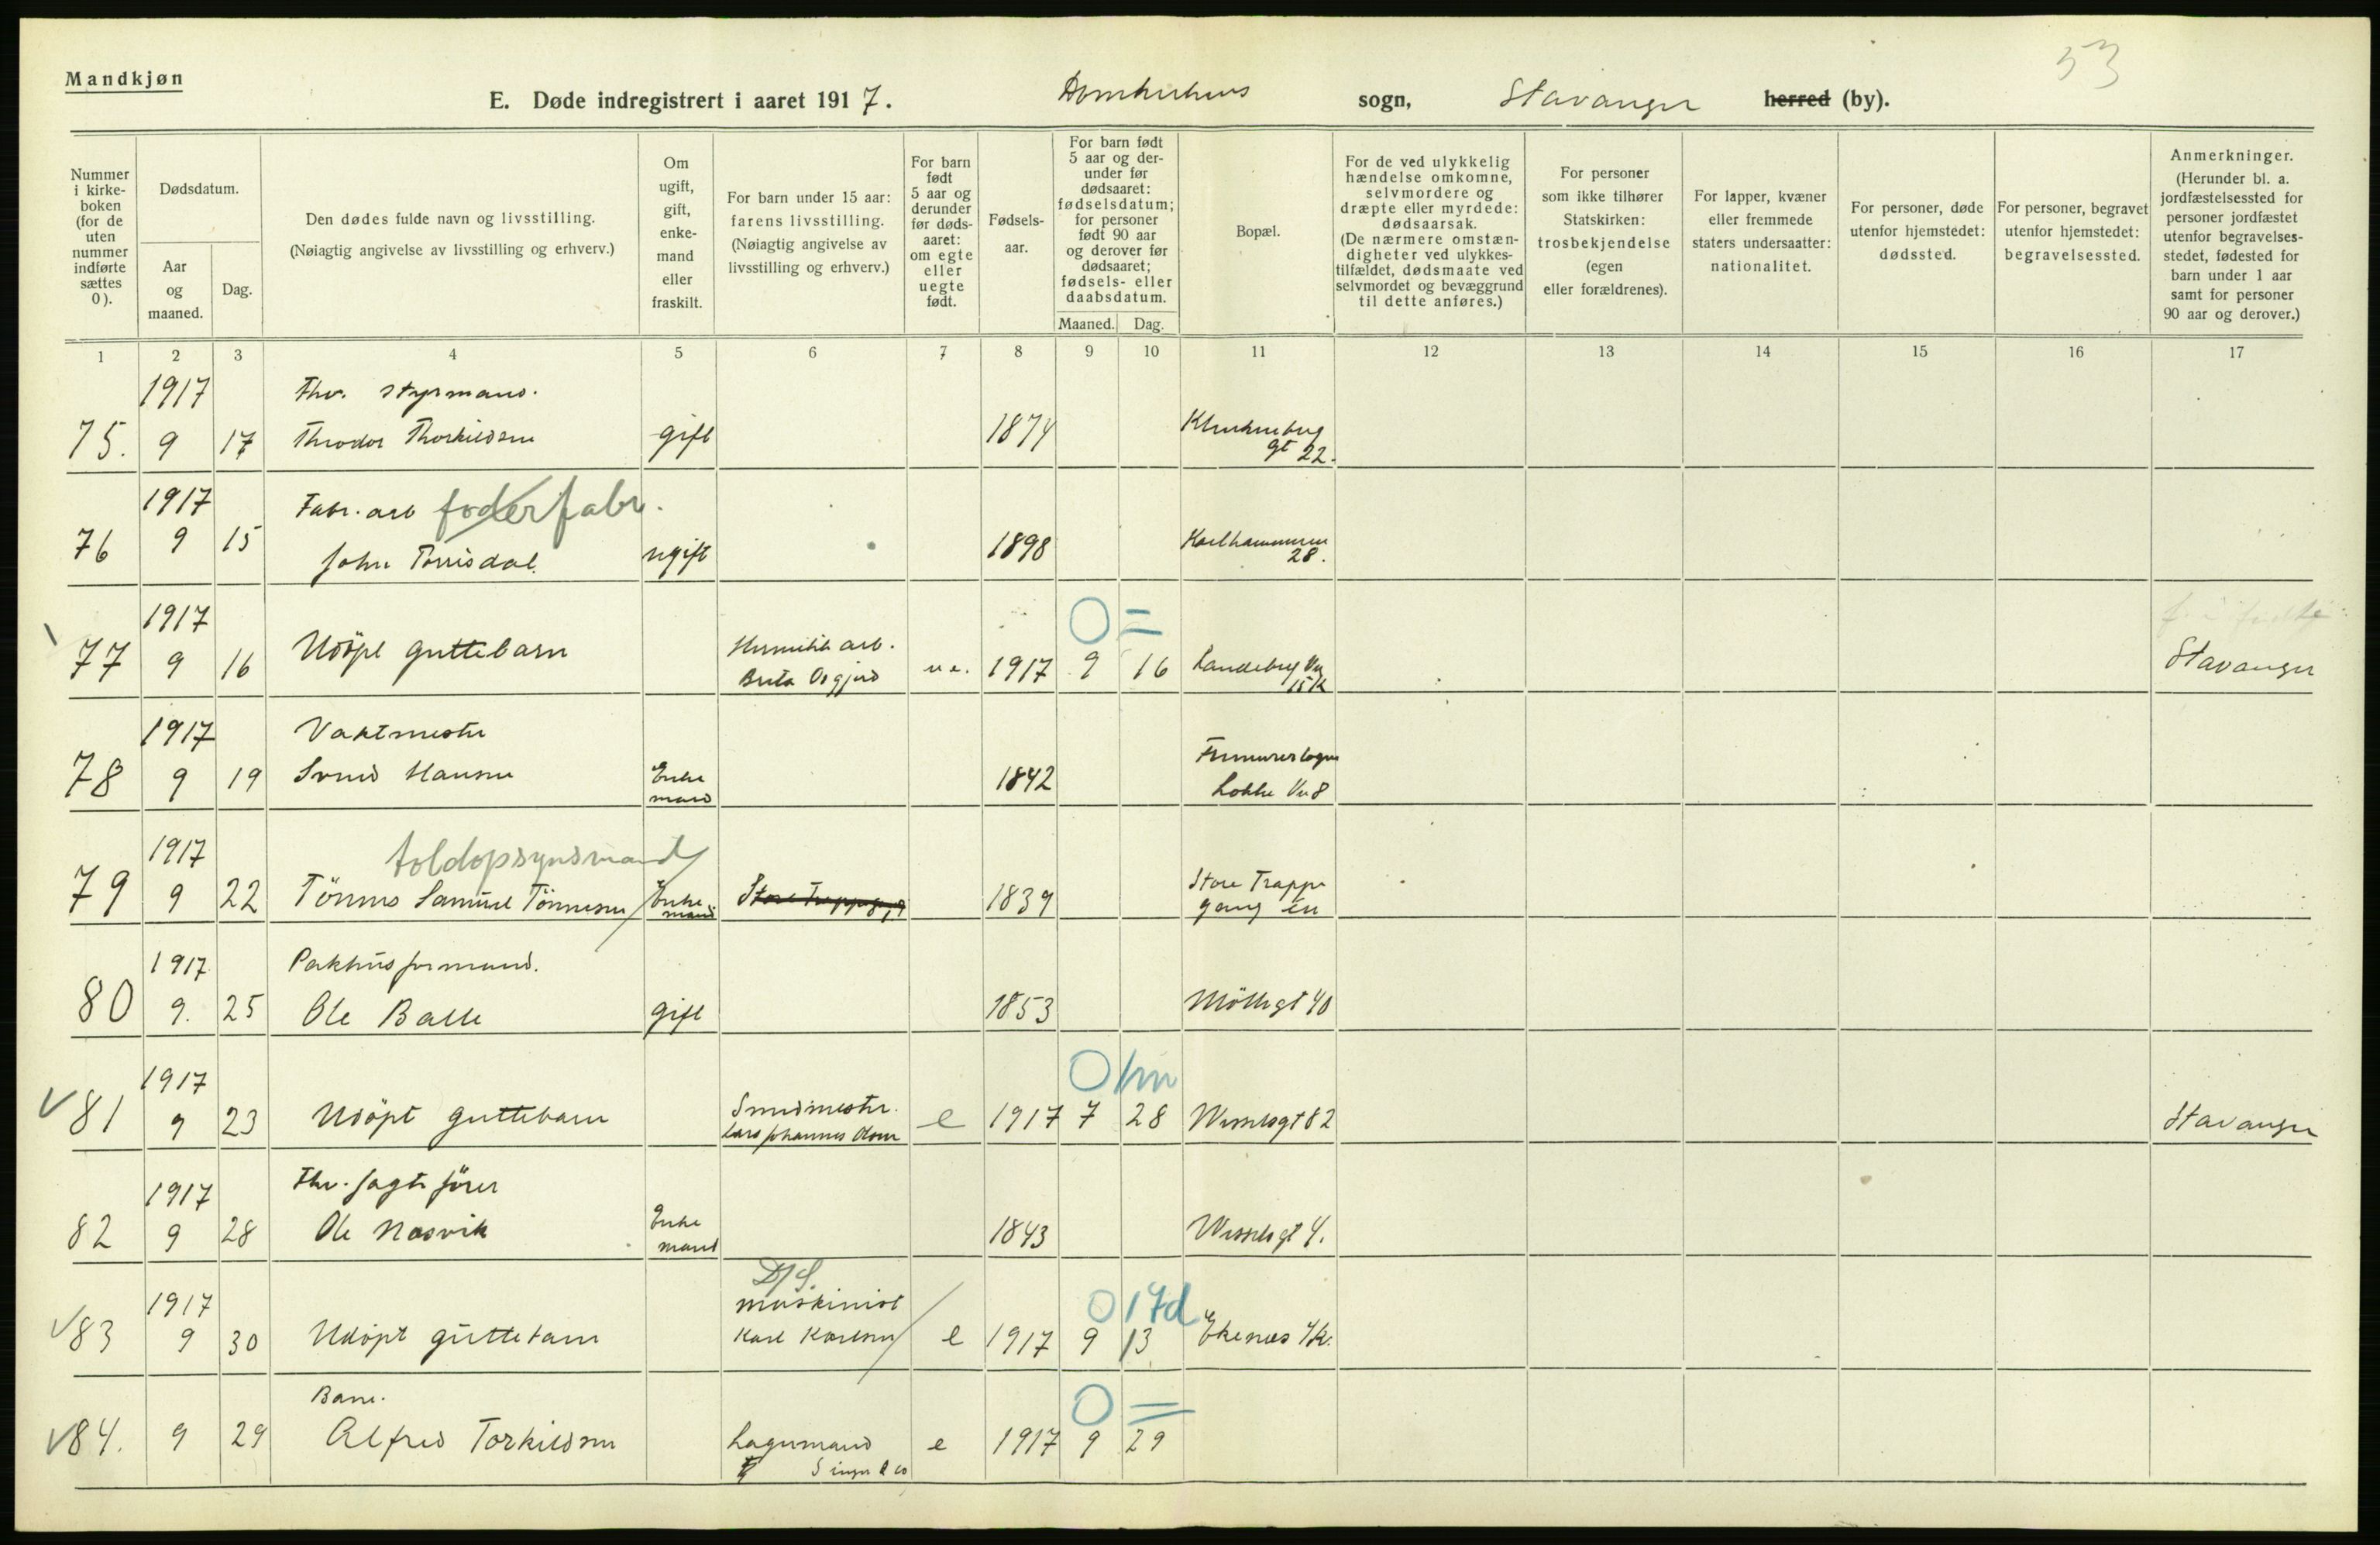 53
Mandkjøn
E. Døde indregistrert i aaret 1917. Domkirkens sogn, Stavanger herred (by).
Nummer i kirke-boken (for de uten nummer indførte sættes 0).
Dødsdatum.
Aar og maaned.
Dag.
Den dødes fulde navn og livsstilling.
(Nøiagtig angivelse av livsstilling og erhverv.)
Om ugift, gift, enke-mand eller fraskilt.
For barn under 15 aar: farens livsstilling. (Nøiagtig angivelse av livsstilling og erhverv.)
For barn født 5 aar og derunder før døds-aaret: om egte eller uegte født.
Fødsels-aar.
For barn født 5 aar og der-under før dødsaaret: fødselsdatum; for personer født 90 aar og derover før dødsaaret; fødsels- eller daabsdatum.
Maaned. Dag.
Bopæl.
For de ved ulykkelig hændelse omkomne, selvmordere og dræpte eller myrdede: dødsaarsak. (De nærmere omstæn-digheter ved ulykkes-tilfældet, dødsmaate ved selvmordet og bevæggrund til dette anføres.)
For personer som ikke tilhører Statskirken: trosbekjendelse (egen eller forældrenes).
For lapper, kvæner eller fremmede staters undersaatter: nationalitet.
For personer, døde utenfor hjemstedet: dødssted.
For personer, begravet utenfor hjemstedet: begravelsessted.
Anmerkninger. (Herunder bl. a. jordfæstelsessted for personer jordfæstet utenfor begravelses-stedet, fødested for barn under 1 aar samt for personer 90 aar og derover.)
1 2 3 4 5 6 7 8 9 10 11 12 13 14 15 16 17
1917 Fhv. styrmand.
75. 9 17 Theodor Thorkildsen gift 1874
gt 22.
1917 Fabr. arb foderfabr.
76 9 15 John Torrisdal. ugift 1898
28.
1917 O =
77 9 16 Udöpt guttebarn u e. 1917 9 16 Stavanger
1917 Vaktmester
78 9 19 Svend Hansen Enke mand 1842
Lokke Vn 8
1917 toldopsynsmand
79 9 22 Tönnes Samuel Tönnesen Enke mand 1839 Store Trappe
gang
1917 Pakhusformand.
80 9. 25 Ole Balle gift 1853 Möllegt 40
1917 O 1m
81 9 23 Udöpt guttebarn Smedmester.
Lars Johannes e 1917 7 28 Wesselsgt 82 Stavanger
1917 Fhv. Jagtförer
82 9 28 Ole Næsvik Enke mand 1843 Wesselsgt 4.
1917 D/S. maskinist O 17d
83 9 30 Udöpt guttebarn Karl Karlsen e 1917 9 13 Ekenæs
Barn. O =
84. 9 29 Alfred Torkildsen Lagermand e 1917 9 29
Singer & co